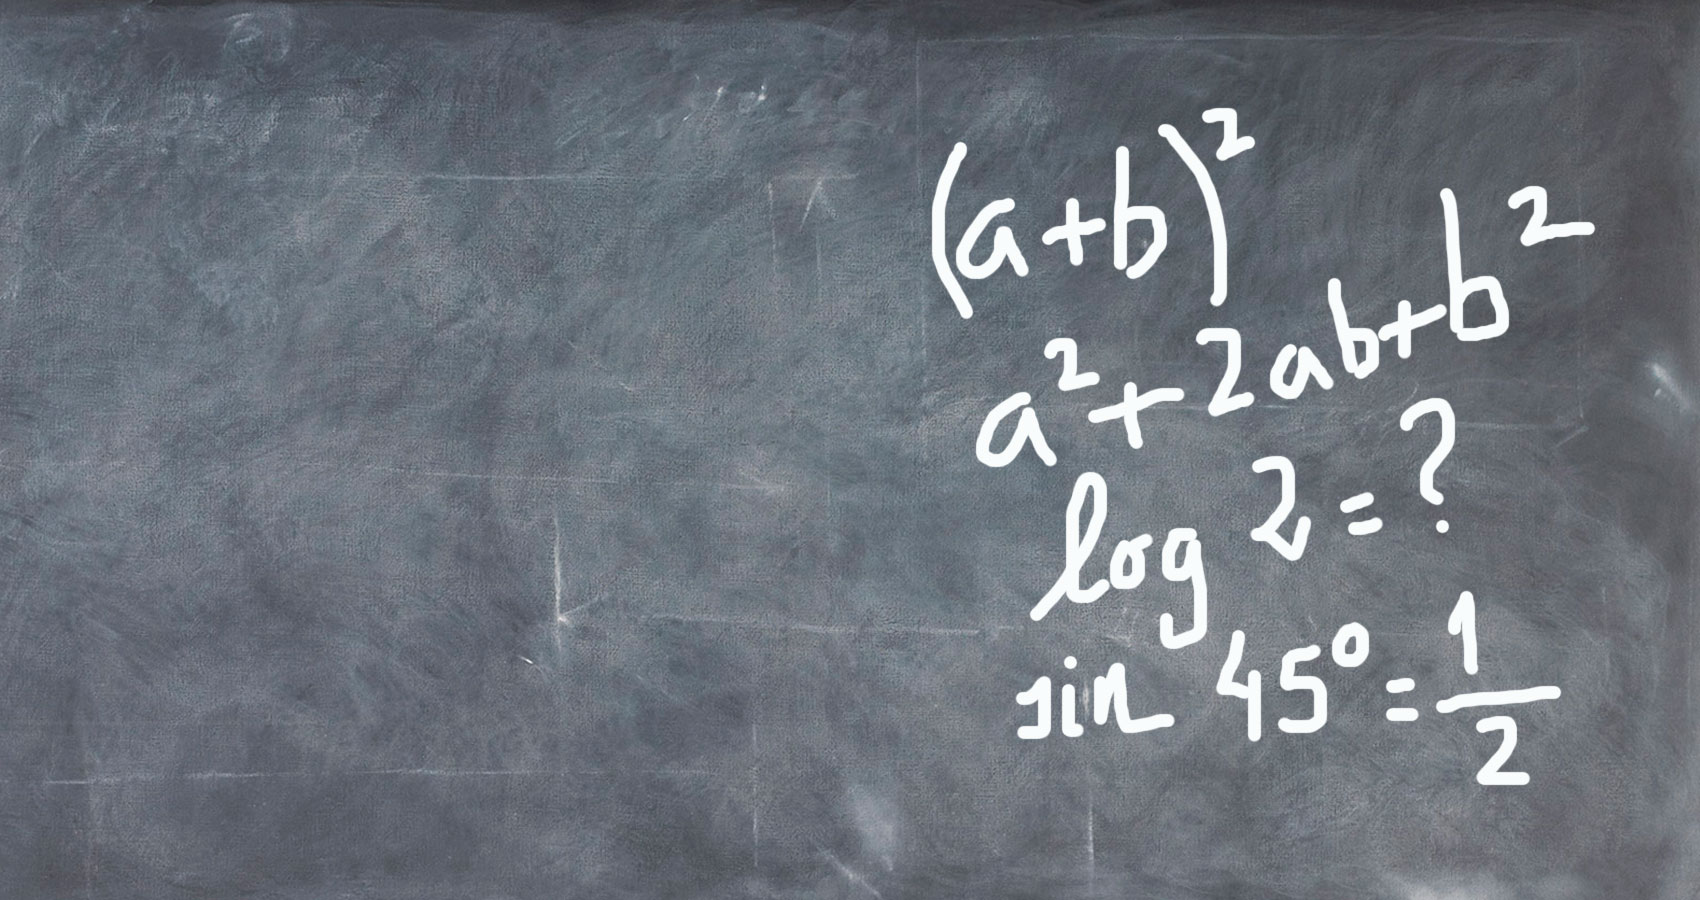 (a+b)²
a²+2ab+b²
log 2=?
sin 45°=1/2